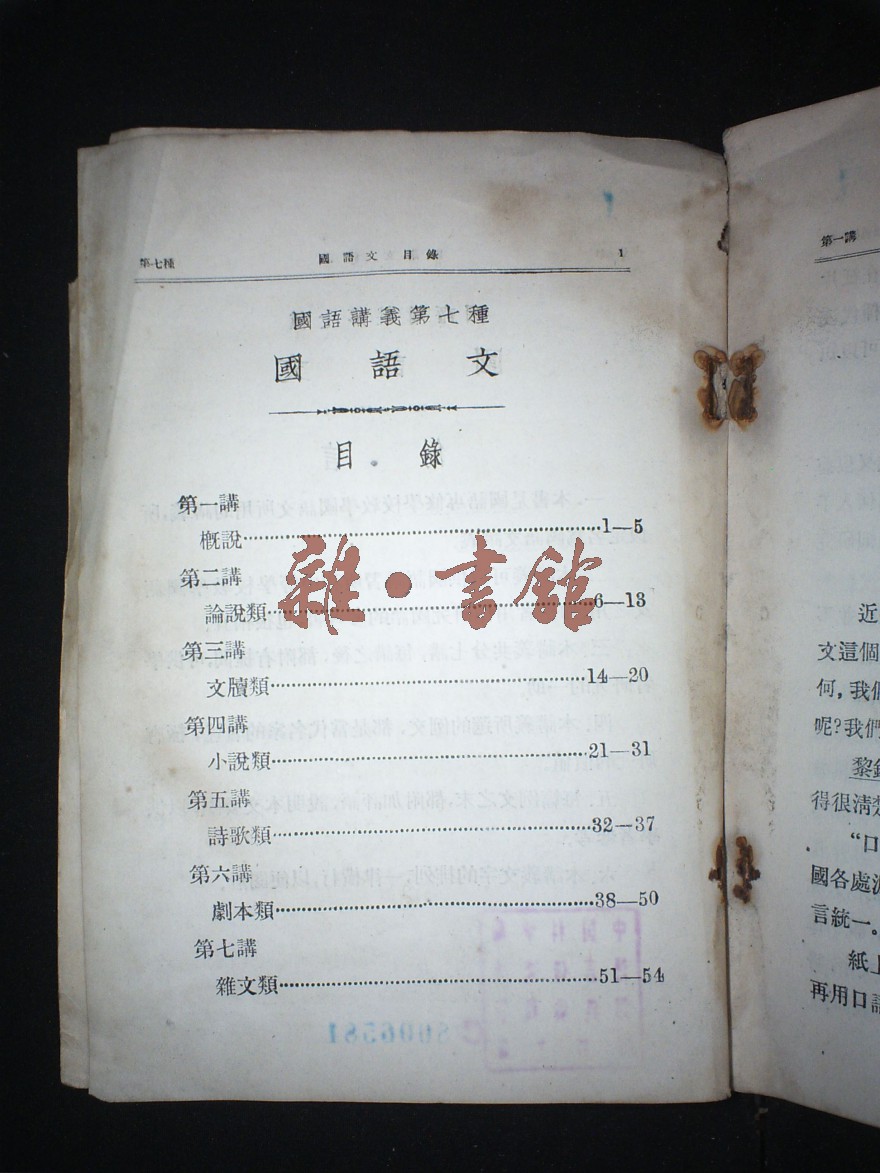 第七種 國語文目錄 1
國語講義第七種
國語文
目錄
第一講
概說 1—5
第二講
論說類 6—13
第三講
文牘類 14—20
第四講
小說類 21—31
第五講
詩歌類 32—37
第六講
劇本類 38—50
第七講
雜文類 51—54
雜·書館
8006581
第一講
近
文這個
何，我們
呢？我們
得很清楚
“口
國各處流
言統一。
紙上
再用口語